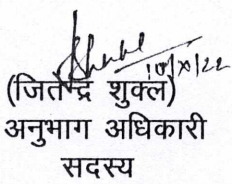 10/x/22
(जितेन्द्र शुक्ल)
अनुभाग अधिकारी
सदस्य